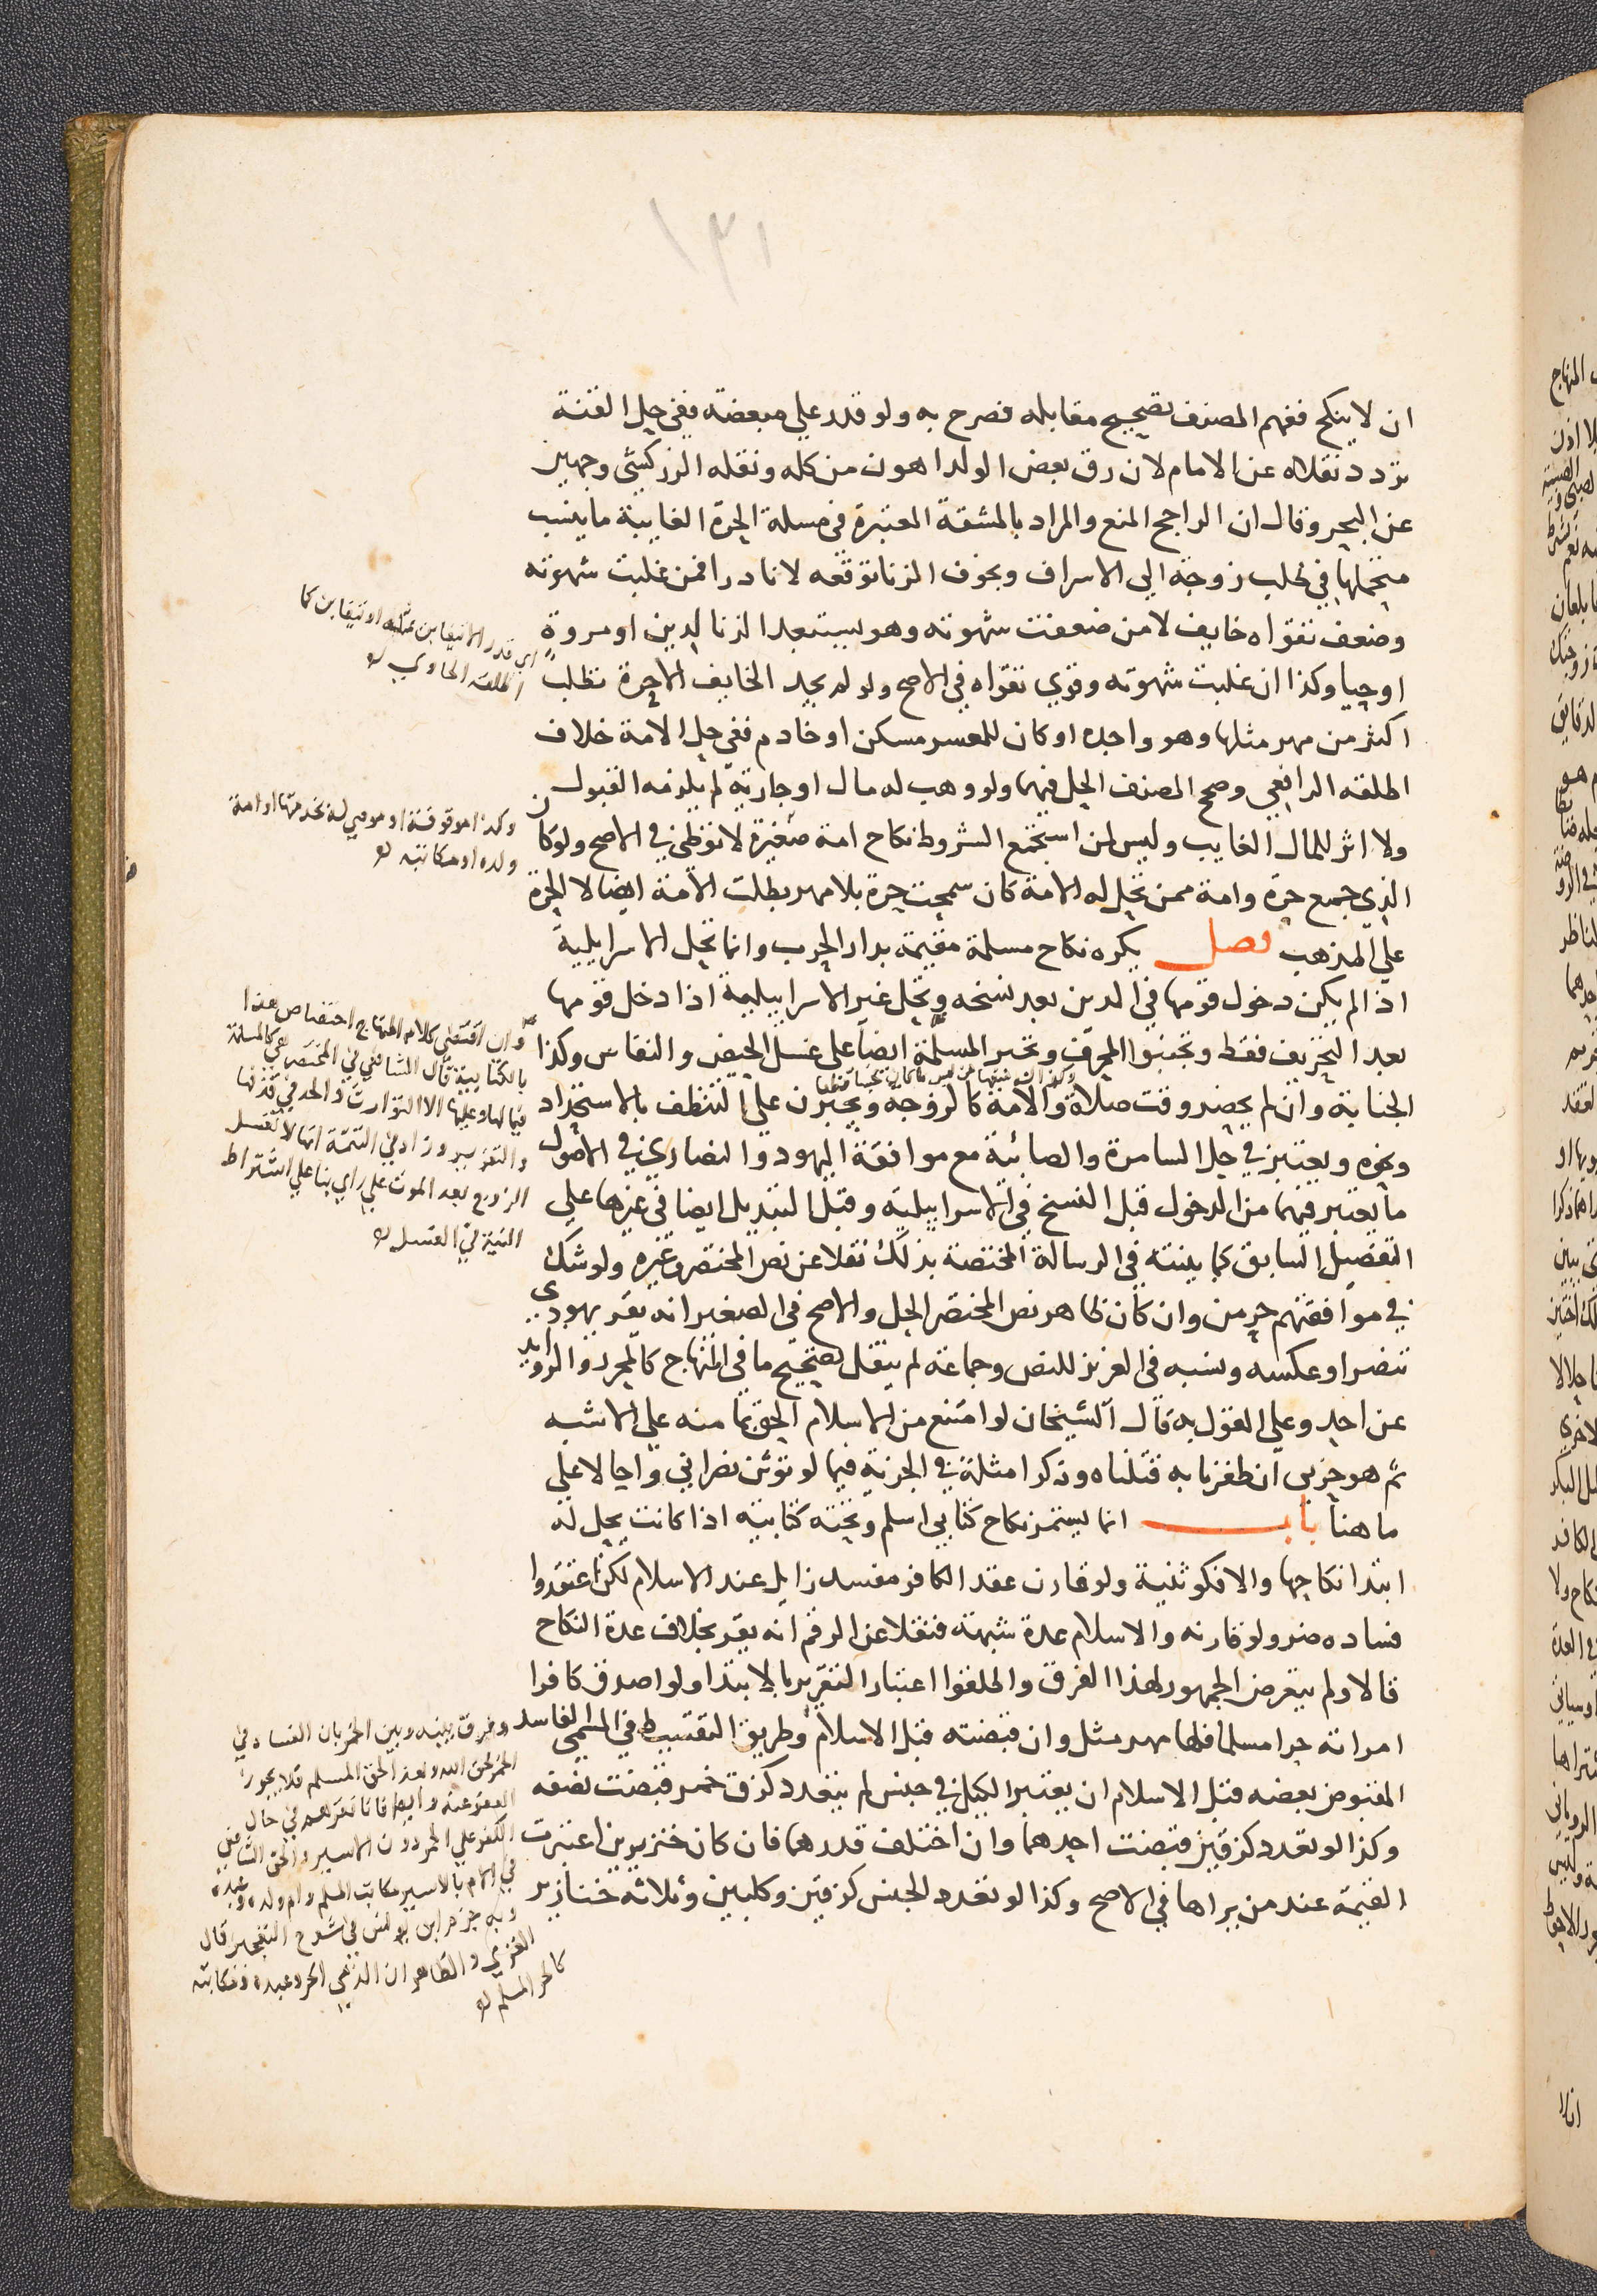 ١٣١
ان لا ينكح ففهم المصنف تصحيح مقابله فصرح به ولو قدر علي مبعضة ففي حل القنة
تردد نقلاه عن الامام لان رق بعض الولد اهون من كله ونقله الزركشي وجهين
عن البحر وقال ان الراجح المنع والمراد بالمشقة المعتبرة في مسلة الحرة الغايبة ما ينسب
متحملها في طلب زوجة الي الاسراف وبخوف الزنا توقعه لا نادرا فمن غلبت شهوته
وضعف تقواه خايف لا من ضعفت شهوته وهو يستبعد الزنا لدين او مروة
او حيا وكذا ان غلبت شهوته وقوي تقواه في الاصح ولو لم يجد الخايف الا حرة تطلب
اكثر من مهر مثلها وهو واجده او كان للمعسر مسكن او خادم ففي حل الامة خلاف
اطلقه الرافعي وصحح المصنف الحل فيهما ولو وهب له مال او جارية لم يلزمه القبول
ولا اثر للمال الغايب وليس لمن استجمع الشروط نكاح امة صغيرة لا توطئ في الاصح ولو كان
الذي جمع حرة وامة ممن تحل له الامة كان سمحت حرة بلا مهر بطلت الامة ايضا لا الحرة
علي المذهب فصل يكره نكاح مسلمة مقيمة بدار الحرب وانما تحل الاسرايلية
اذا لم يكن دخول قومها في الدين بعد نسخه وتحل غير الاسرايلية اذا دخل قومها
بعد التحريف فقط وتجنبوا المحرف وتجبر المسلمة ايضا علي غسل الحيض والنفاس وكذا
الجنابة وان لم يحضر وقت صلاة والامة كالزوجة ويجبرن علي التنظف بالاستحداد
ونحوه ويعتبر في حل السامرة والصابئة مع موافقة اليهود والنصاري في الاصول
ما يعتبر فيهما من الدخول قبل النسخ في الاسرايلية وقبل التبديل ايضا في غيرها علي
التفصيل السابق كما بينته في الرسالة المختصة بذلك نقلا عن نص المختصر وغيره ولو شك
في موافقتهم حرمن وان كان ظاهر نص المختصر الحل والاصح في الصغير انه يقر يهودي
تنصر او عكسه ونسبه في العزيز للنص وجماعة لم ينقل تصحيح ما في المنهاج كالمجرد والزوايد
عن احد وعلي القول به قال الشيخان لو امتنع من الاسلام الحق بمامنه علي الاشبه
ثم هو حربي ان ظفرنا به قتلناه وذكرا مثله في الجزية فيما لو توثن نصراني واحالا علي
ما هنا باب انما يستمر نكاح كتابي اسلم وتحته كتابية اذا كانت يحل له
ابتدا نكاحها والا فكوثنية ولو قارن عقد الكافر مفسد زايل عند الاسلام لكن اعتقدوا
فساده ضر ولو قارنه والاسلام عدة شبهة فنقلا عن الرقم انه يقر بخلاف عدة النكاح
قالا ولم يتعرض الجمهور لهذا الفرق واطلقوا اعتبار التقرير بالابتدا ولو اصدق كافرا
امراته حرا مسلما فلها مهر مثل وان قبضته قبل الاسلام وطريق التقسيط في المسمى الفاسد
المقبوض بعضه قبل الاسلام ان يعتبر الكيل في جنس لم يتعدد كزق خمر قبضت نصفه
وكذا لو تعدد كزقين قبضت احدهما وان اختلف قدرهما فان كان خنزيرين اعتبرت
القيمة عند من يراها في الاصح وكذا لو تعدد الجنس كزقين وكلبين وثلاثة خنازير
اطلقه الحاوي
وكذا موقوفة او موصي له بخدمتها او امة
ولده او مكاتبته
وان اقتضي كلام المنهاج اختصاص هذا
بالكتابية قال الشافعي في المختصر هي كالمسلمة
فيما لها وعليها الا التوارث والحد في قذفها
والتعزير وزاد في التتمة انها لا تغسل
الزوج بعد الموت علي راي بنا علي اشتراط
النية في الغسل
وفرق بينه وبين الخمر بان الفساد في
الخمر لحق الله وهذا لحق المسلم فلا يجوز
العفو عنه وايضا فانا نقرهم في حال
الكفر علي الخمر دون الاسير والحق الشافعي
في الام بالاسير مكاتب المسلم وام ولده وعبده
وبه جزم ابن يونس في شرح التعجيز قال
الغزي والظاهر ان الذمي الحر وعبده ومكاتبه
كالحر المسلم